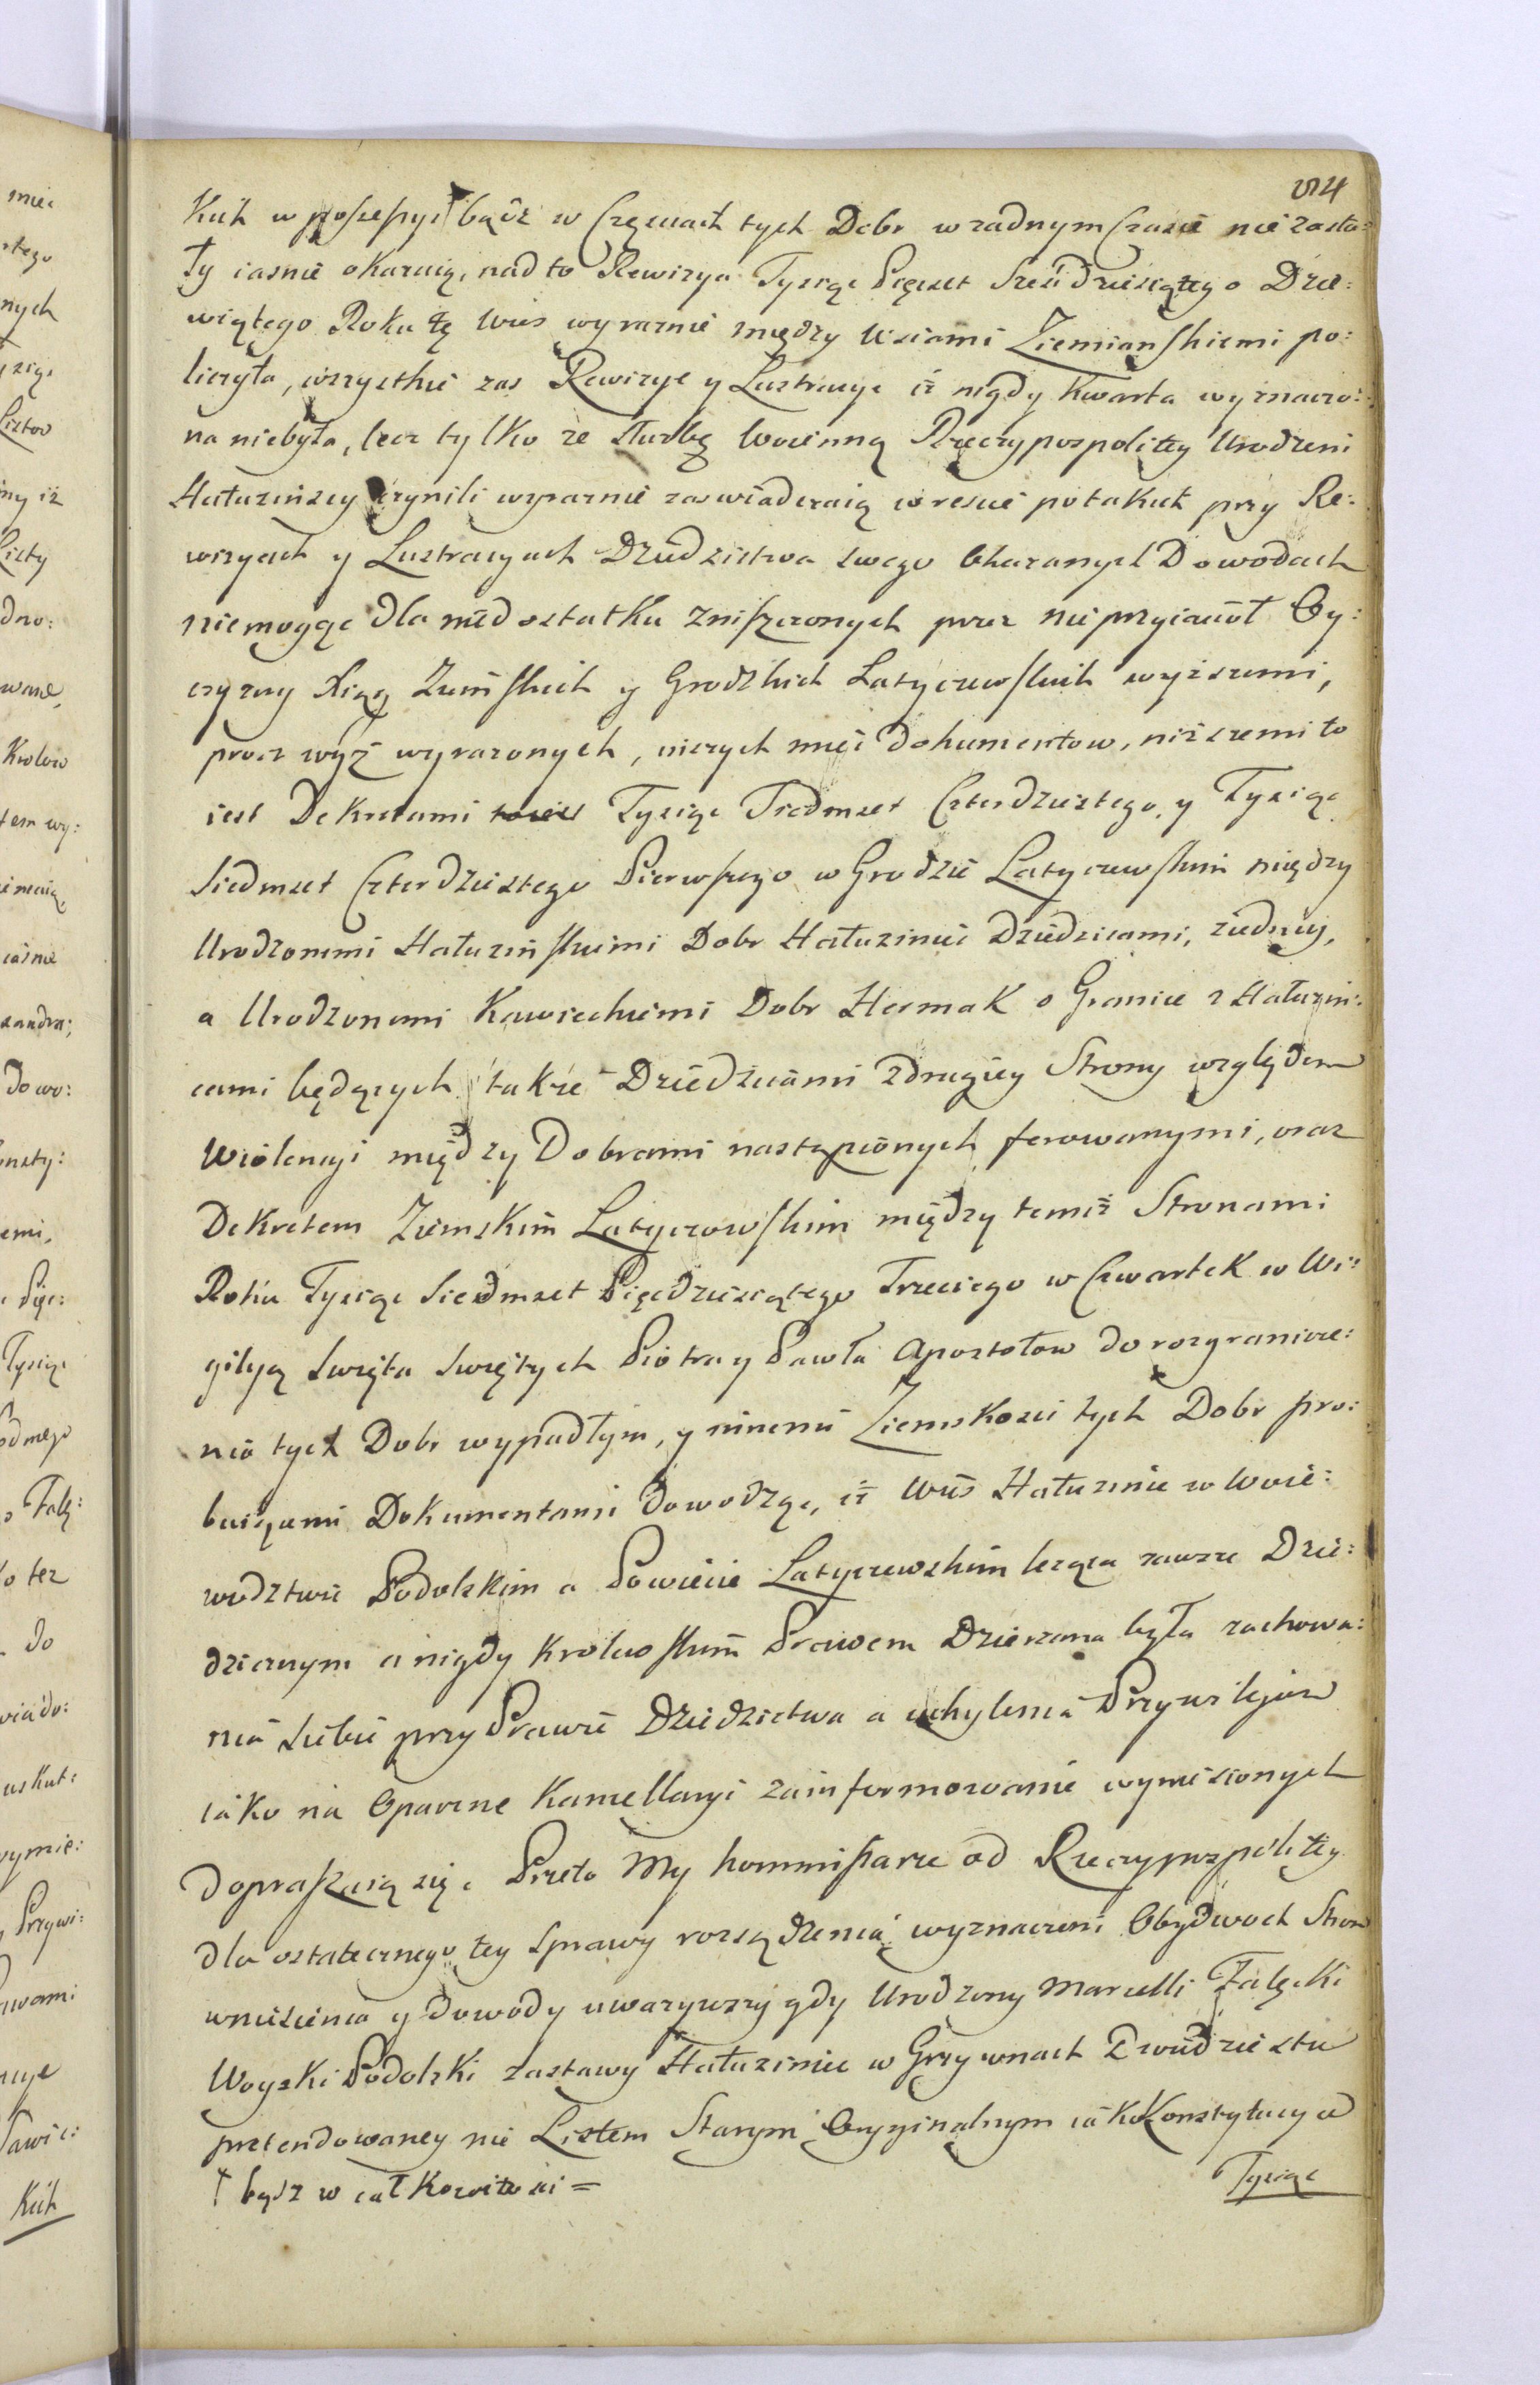 Kich w possessyi † bądz w Częsciach tych Dobr w zadnym Czasie nie zosta:
ły iasnie okazuią, nad to Rewizya Tysiąc Pięcset Szesćdziesiątego Dzie:
wiątego Roku tę Wies wyraznie między Wsiami Ziemianskiemi po:
liczyła, wszystkie zas Rewizye y Lustracye iż nigdy Kwarta wyznaczo:
na niebyła, lecz tylko ze służbę Woienną Rzeczypospolitey Urodzeni
Hałuzińscy czynili wyraznie zaswiadczaią wrescie po takich przy Re:
wizyach y Lustracyach Dziedzictwa swego Okazanych Dowodach
niemogąc dla niedostatku zniszczonych przez nieprzyiacioł Oy:
czyzny Xiąg Ziemskich y Grodzkich Latyczewskich wyższemi,
procz wyż wyrazonych, niczych mieć dokumentow, niższemi to
iest Dekretami Tysiąc Siedmset Czterdziestego, y Tysiąc
Siedmset Czterdziestego Pierwszego w Grodzie Latyczewskim między
Urodzonemi Hałuzińskiemi Dobr Hałuziniec Dziedzicami, ziedney,
a Urodzonemi Kawieckiemi Dobr Hermak o Granice z Hałuzin:
cami będących także Dziedzicami z drugiey Strony względem
Wiolencyi między Dobrami nastąpionych ferowanymi, oraz
Dekretem Ziemskim Latyczowskim między temiż Stronami
Roku Tysiąc Siedmset Pięcdziesiątego Trzeciego w Czwartek w Wi:
gilyą Swięta Swiętych Piotra y Pawła Apostołow do rozgranicze:
nia tych Dobr wypadłym, y innemi Ziemskosci tych Dobr pro:
buiącemi Dokumentami dowodząc, iż Wieś Hałuzince w Woie:
wodztwie Podolskim a Powiecie Latyczewskim leząca zawsze Dzie:
dzicznym a nigdy Krolewskim Prawem Dzierzana była zachowa:
nia Siebie przy Prawie Dziedzictwa a uchylenia Przywilejow
iako na Opaczne Kancellaryi zainformowanie wyniesionych
dopraszaią się. Przeto My Kommissarze od Rzeczypospolitey
dla ostatecznego tey Sprawy rozsądzenia wyznaczeni Obydwoch Stron
wniesienia y dowody uwazywszy gdy Urodzony Marcelli Załęcki
Woyski Podolski zastawy Hałuziniec w Grzywnach Dwudziestu
pretendowaney nie Listem Starym Oryginalnym iako Konstytucya
† bądz w całkowitosci = Tysiąc